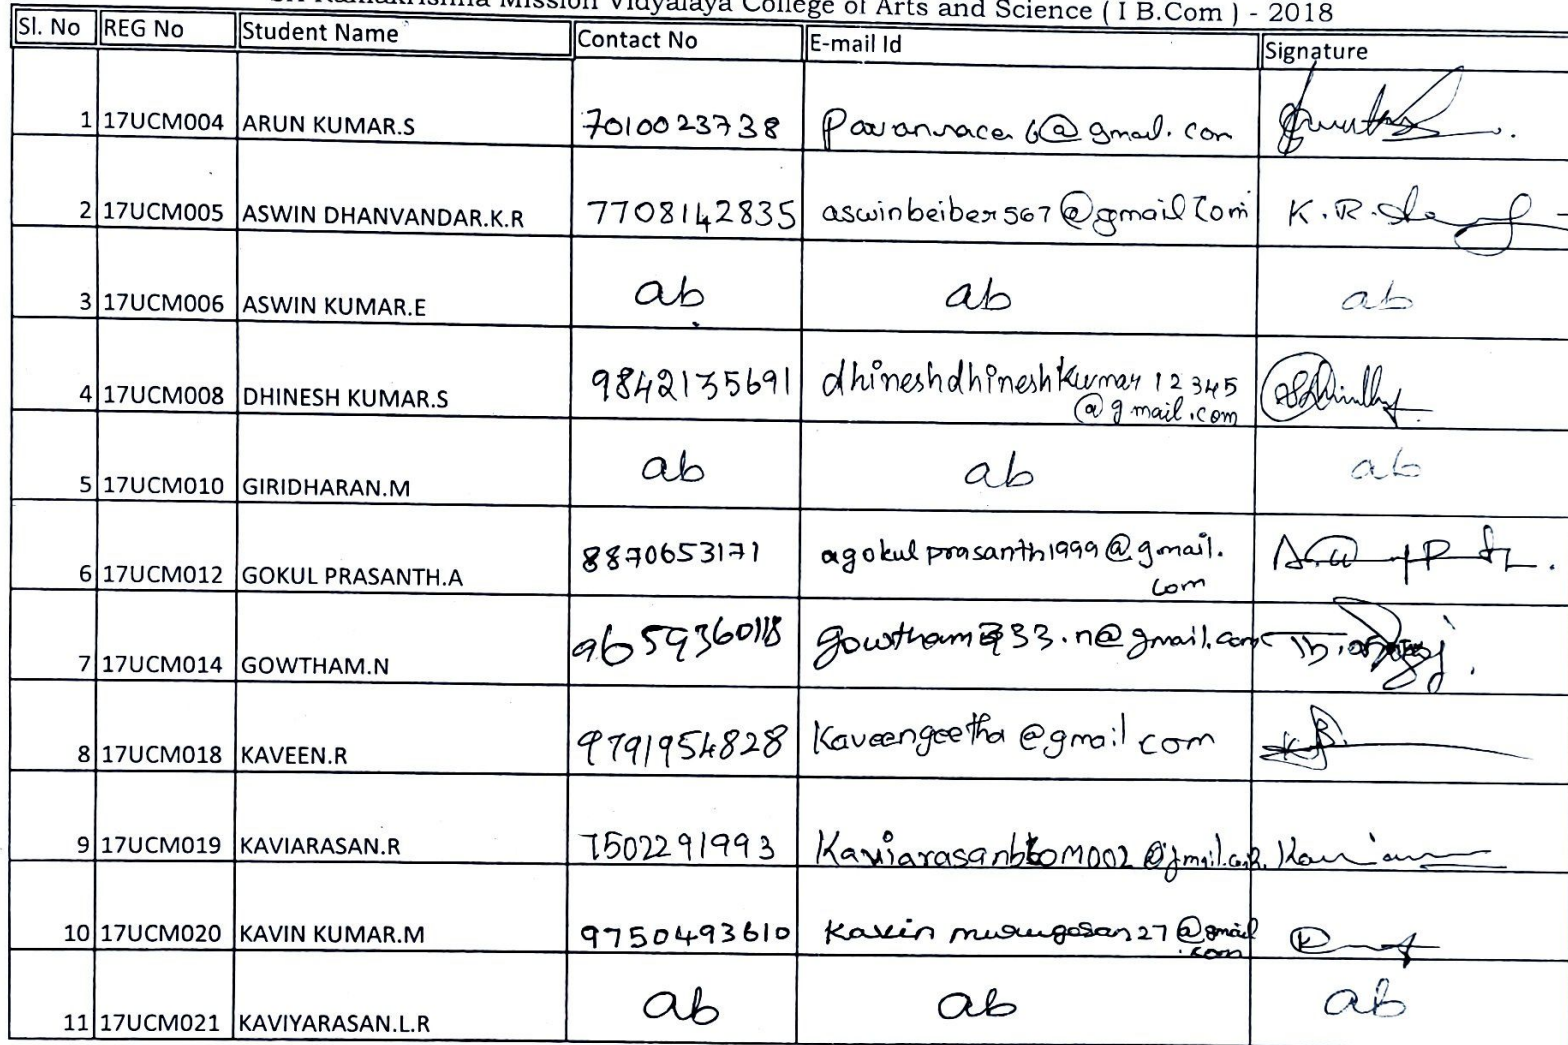 Ramakrishna Mission Vidyalaya College of Arts and Science ( I B.Com ) - 2018
Sl. No REG No Student Name Contact No E-mail Id Signature
1 17UCM004 ARUN KUMAR.S 7010023738 pavanracer6@gmail.com
2 17UCM005 ASWIN DHANVANDAR.K.R 7708142835 aswinbeiber567@gmail.com K.R.
3 17UCM006 ASWIN KUMAR.E ab ab ab
4 17UCM008 DHINESH KUMAR.S 9842135691 dhineshdhineshkumar12345
@gmail.com
5 17UCM010 GIRIDHARAN.M ab ab ab
6 17UCM012 GOKUL PRASANTH.A 8870653171 agokulprasanth1999@gmail.
com
7 17UCM014 GOWTHAM.N 9659360118
8 17UCM018 KAVEEN.R 9791954828 Kaveengeetha@gmail com
9 17UCM019 KAVIARASAN.R 7502291993
10 17UCM020 KAVIN KUMAR.M 9750493610 kavin murugesan27@gmail
.com
11 17UCM021 KAVIYARASAN.L.R ab ab ab